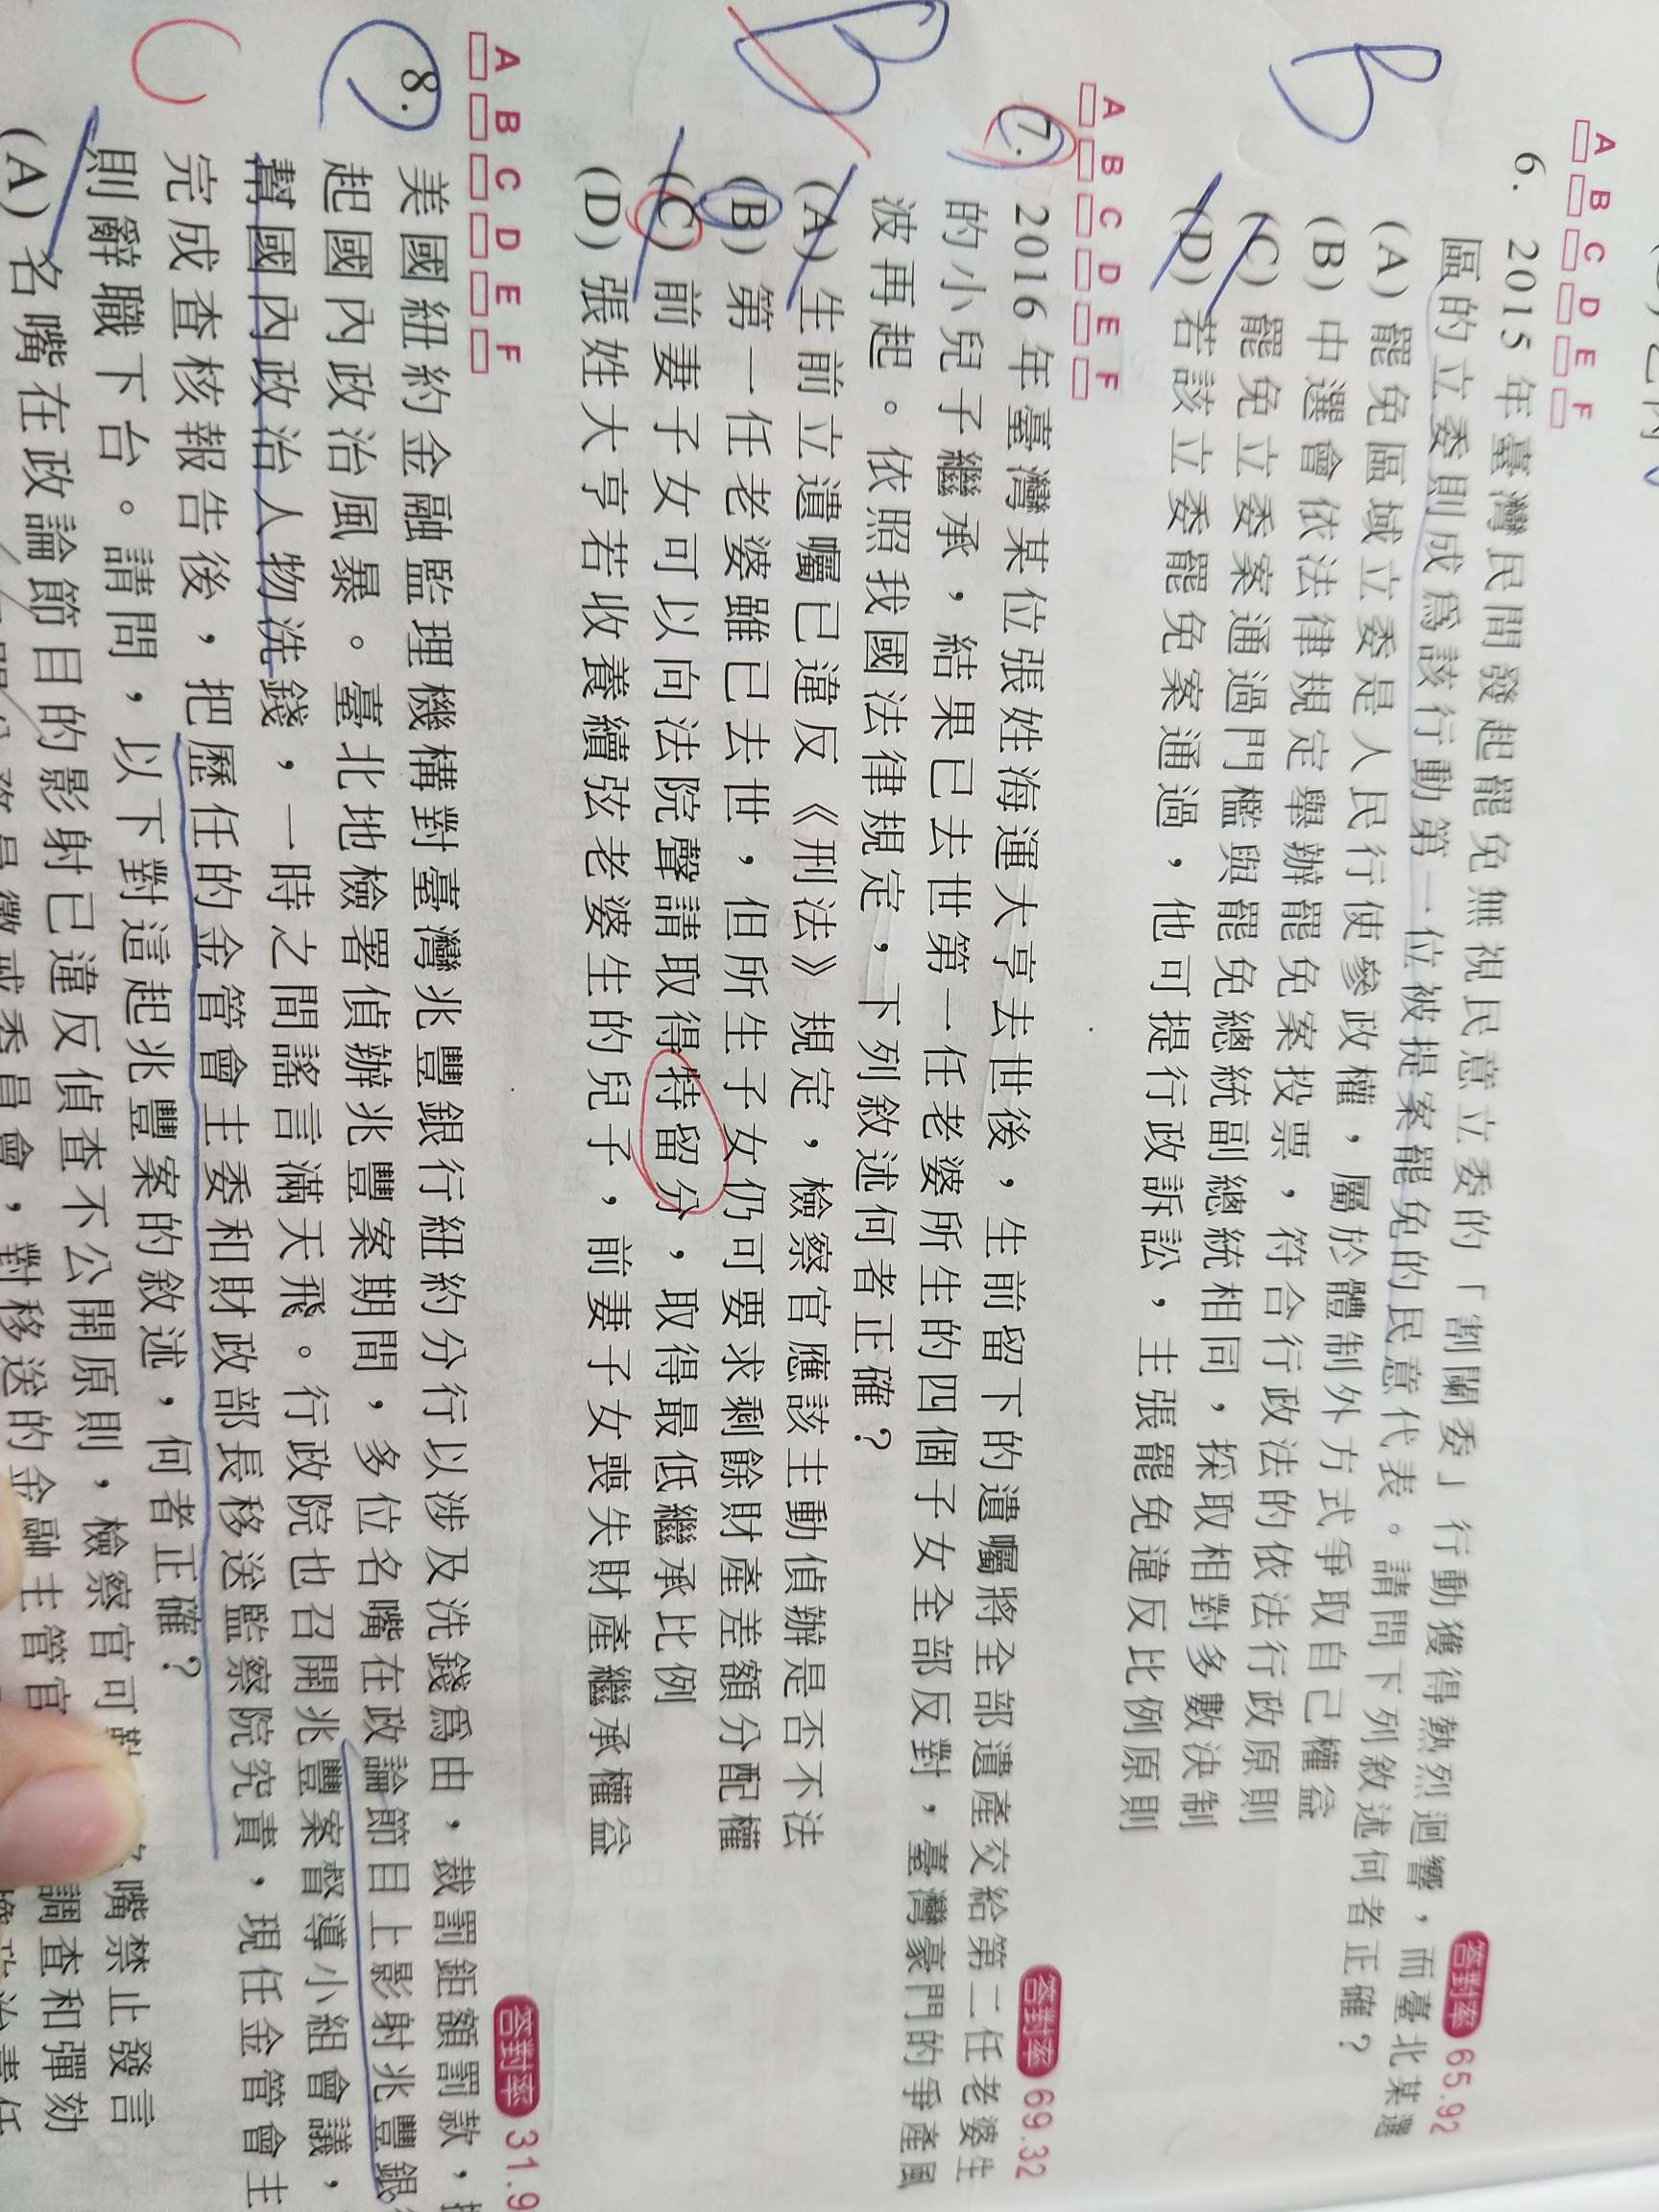 A B C D E F
6. 2015年臺灣民間發起罷免無視民意立委的「割闌委」行動獲得熱烈迴響，而臺北某選
答對率 65.92
區的立委則成為該行動第一位被提案罷免的民意代表。請問下列敘述何者正確？
B
(A) 罷免區域立委是人民行使參政權，屬於體制外方式爭取自己權益
(B) 中選會依法律規定舉辦罷免案投票，符合行政法的依法行政原則
(C) 罷免立委案通過門檻與罷免總統副總統相同，採取相對多數決制
(D) 若該立委罷免案通過，他可提行政訴訟，主張罷免違反比例原則
A B C D E F
7. 2016年臺灣某位張姓海運大亨去世後，生前留下的遺囑將全部遺產交給第二任老婆生
答對率 69.32
的小兒子繼承，結果已去世第一任老婆所生的四個子女全部反對，臺灣豪門的爭產風
波再起。依照我國法律規定，下列敘述何者正確？
B
(A) 生前立遺囑已違反《刑法》規定，檢察官應該主動偵辦是否不法
(B) 第一任老婆雖已去世，但所生子女仍可要求剩餘財產差額分配權
(C) 前妻子女可以向法院聲請取得特留分，取得最低繼承比例
(D) 張姓大亨若收養續弦老婆生的兒子，前妻子女喪失財產繼承權益
A B C D E F
答對率 31.9
8. 美國紐約金融監理機構對臺灣兆豐銀行紐約分行以涉及洗錢為由，裁罰鉅額罰款，
起國內政治風暴。臺北地檢署偵辦兆豐案期間，多位名嘴在政論節目上影射兆豐銀
幫國內政治人物洗錢，一時之間謠言滿天飛。行政院也召開兆豐案督導小組會議，
完成查核報告後，把歷任的金管會主委和財政部長移送監察院究責，現任金管會主
C
則辭職下台。請問，以下對這起兆豐案的敘述，何者正確？
(A) 名嘴在政論節目的影射已違反偵查不公開原則，檢察官可 嘴禁止發言
員會，對移送的金融主管官 調查和彈劾